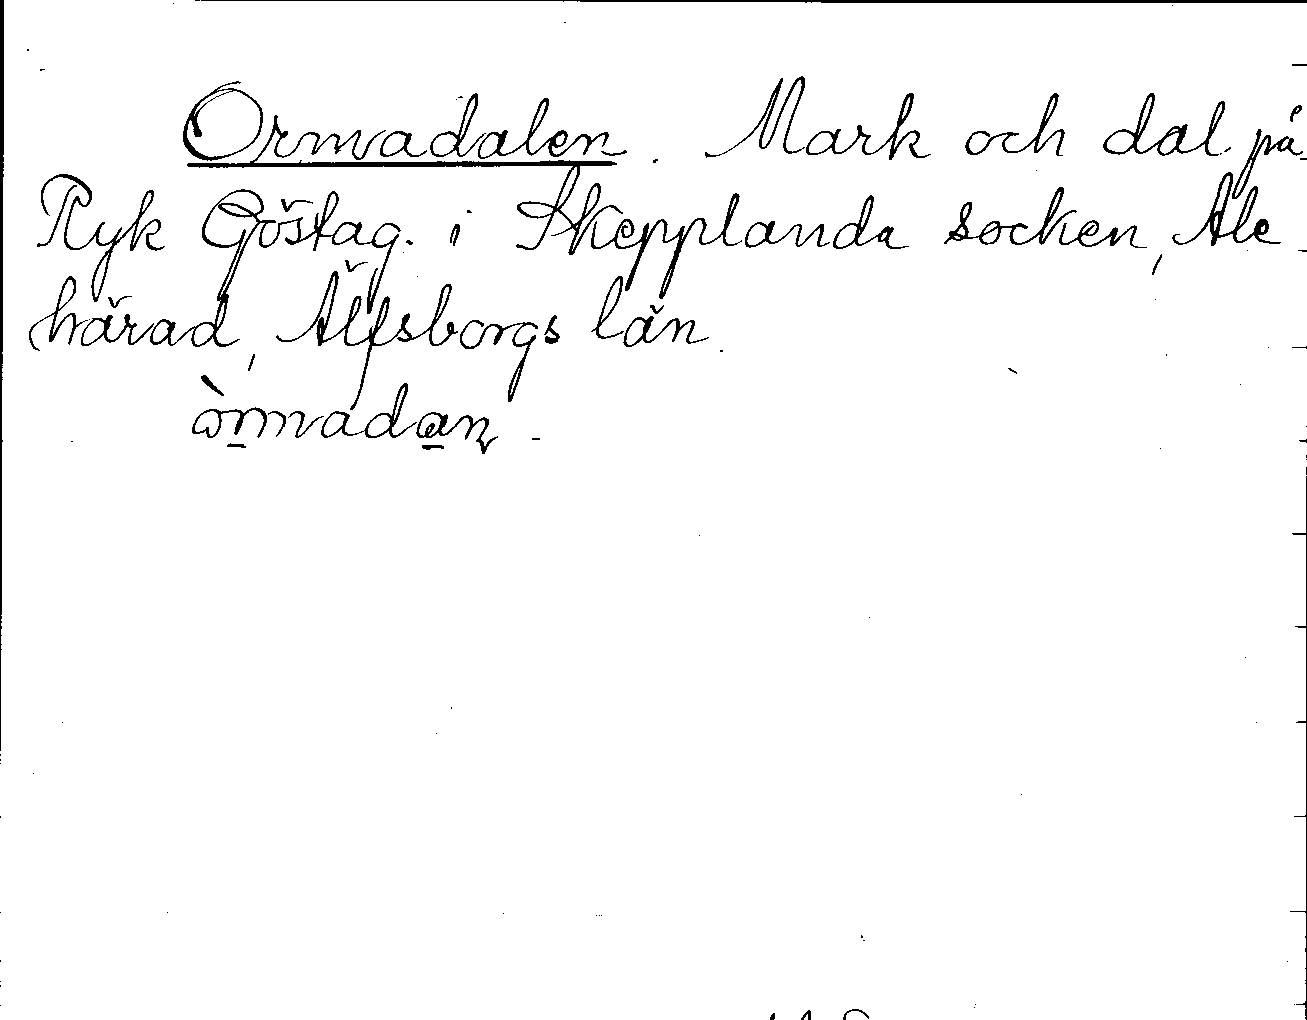 Ormadalen. Mark och dal på
Ryk Göstag. i Skepplanda socken, Ale
härad, Älfsborgs län.
òrmadan